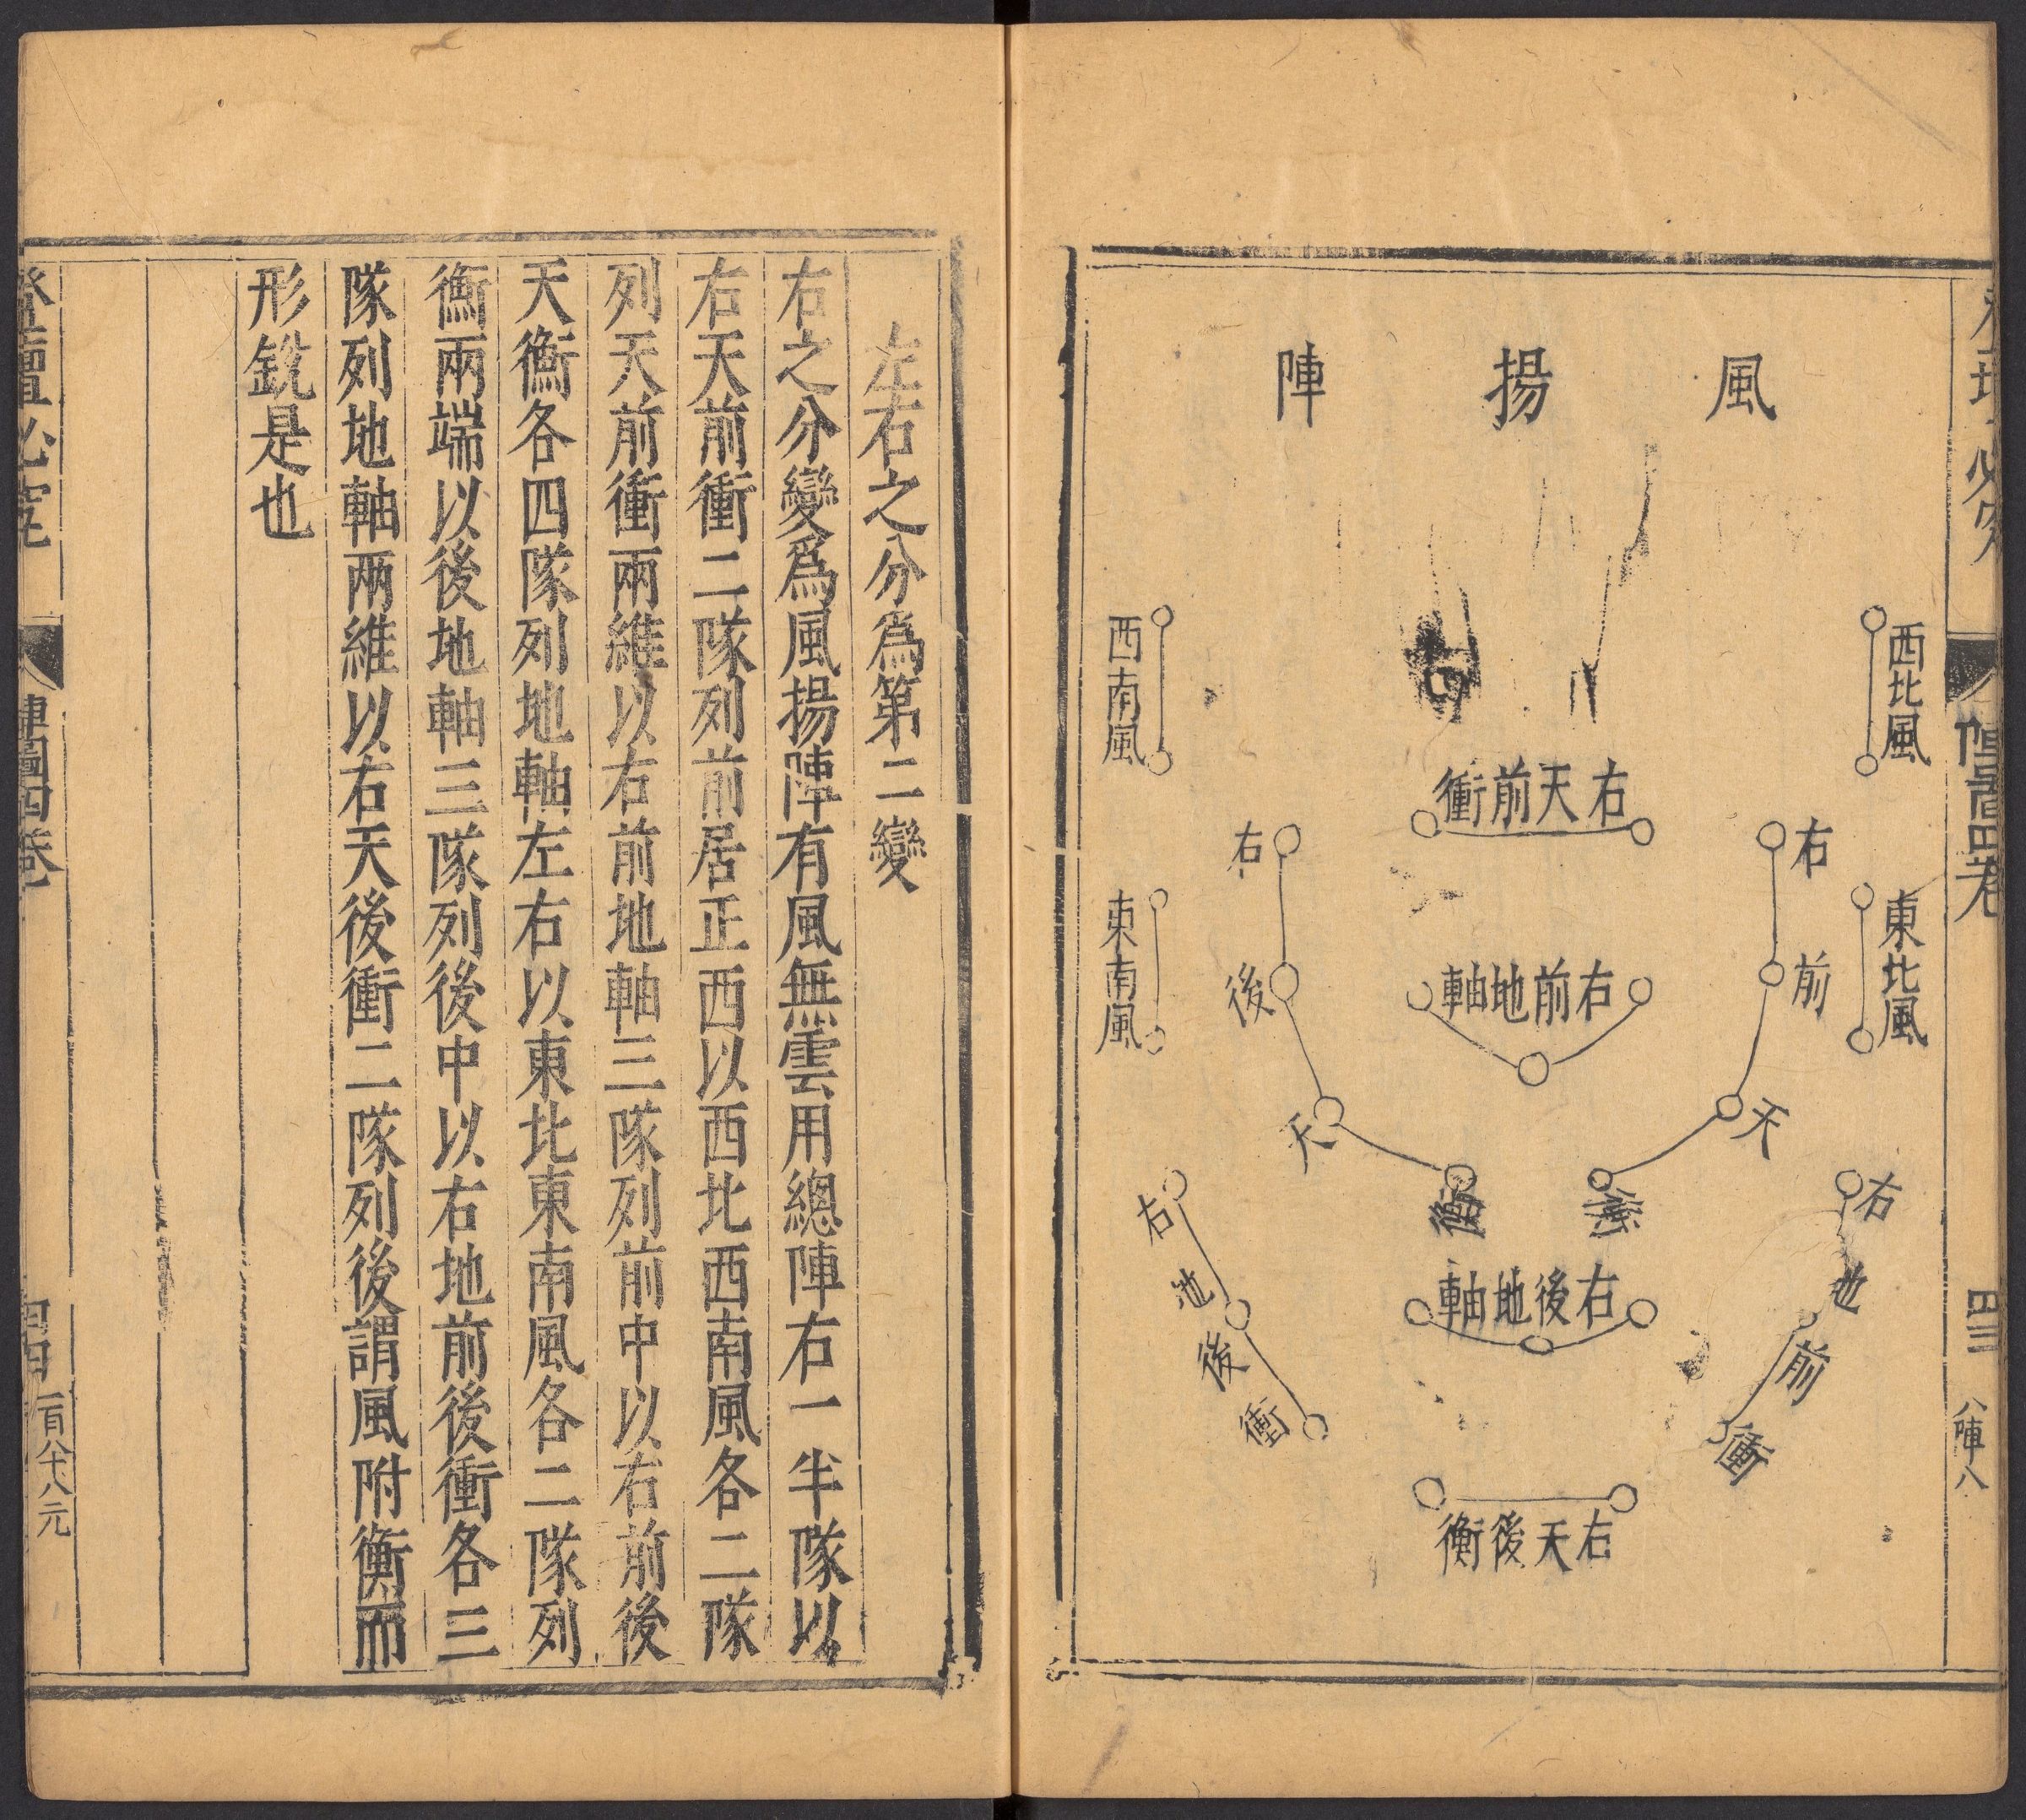 風揚陣
西北風
西南風
右天前衝
右前
右後
東北風
東南風
右前地軸
天衡
天衡
右地前衝
右地後衝
右後地軸
右天後衡
陣圖四卷
四三
八陣八
左右之分爲第二變
右之分變爲風揚陣有風無雲用總陣右一半隊以
右天前衝二隊列前居正西以西北西南風各二隊
列天前衝兩維以右前地軸三隊列前中以右前後
天衡各四隊列地軸左右以東北東南風各二隊列
衡兩端以後地軸三隊列後中以右地前後衝各三
隊列地軸兩維以右天後衝二隊列後謂風附衡而
形銳是也
登壇必究
陣圖四卷
四四
一百八十八元